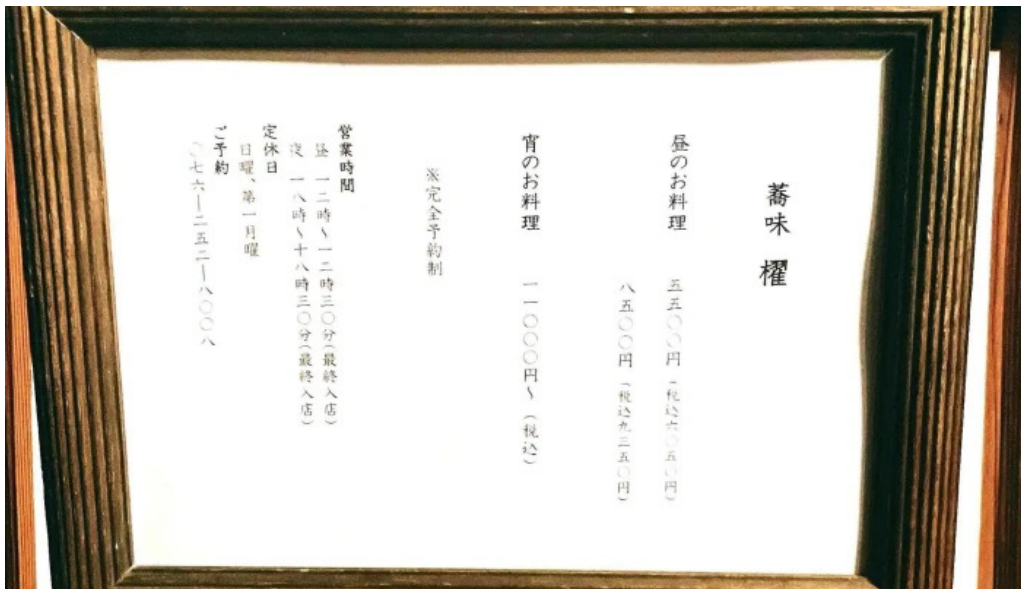 蕎味 櫂
昼のお料理 五五〇〇円(税込六〇五〇円)
八五〇〇円(税込九三五〇円)
宵のお料理 一一〇〇〇円〜(税込)
※完全予約制
営業時間
昼 一二時〜一二時三〇分(最終入店)
夜 一八時〜十八時三〇分(最終入店)
定休日
日曜、第一月曜
ご予約
〇七六―二五二―八〇〇八